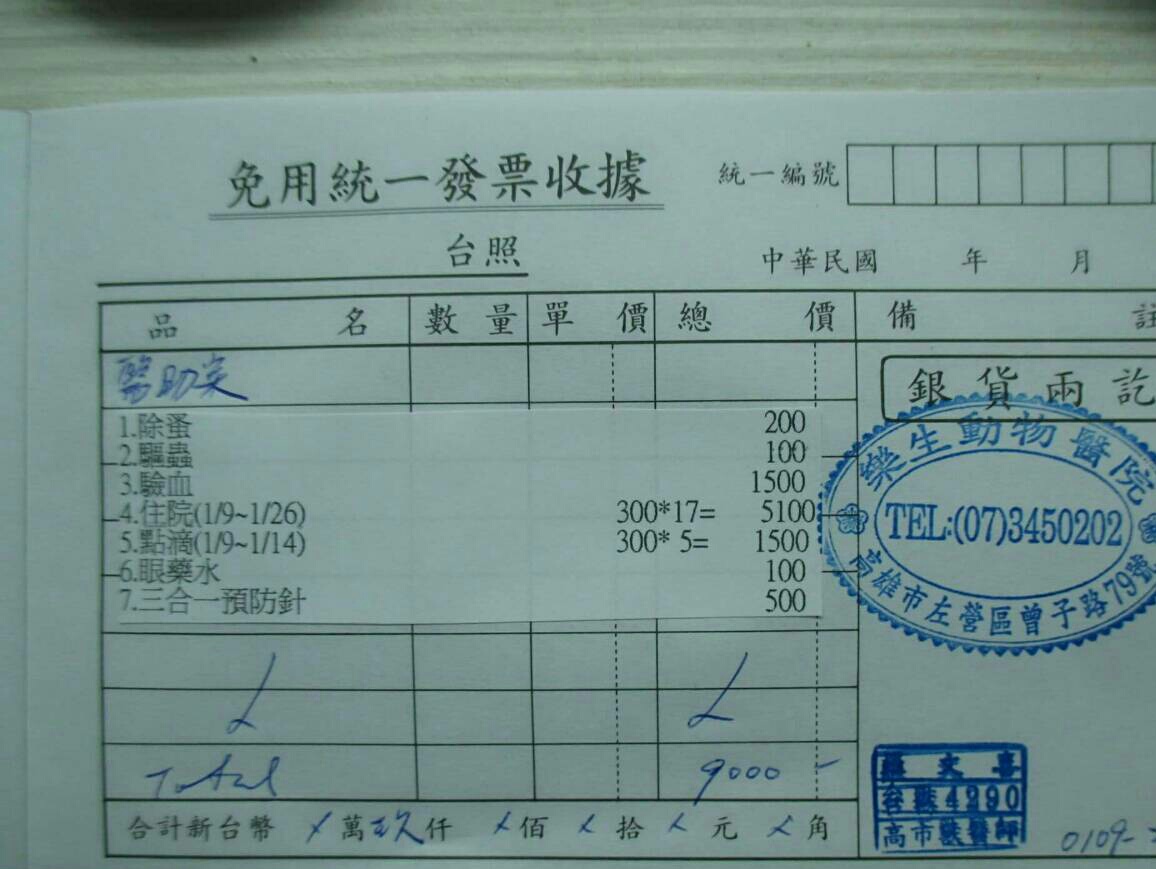 免用統一發票收據
統一編號
台照
中華民國 年 月
品名 數量 單價 總價 備註
銀貨兩訖
1.除蚤 200
2.驅蟲 100
3.驗血 1500
4.住院(1/9~1/26) 300*17= 5100
5.點滴(1/9~1/14) 300* 5= 1500
6.眼藥水 100
7.三合一預防針 500
樂生動物醫院
TEL:(07)3450202
高雄市左營區曾子路79號
Total 9000
合計新台幣 萬 仟 佰 拾 元 角
4290
高市獸醫師
0109-